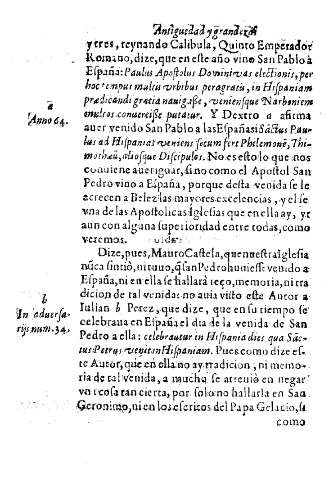 Antiguedad y grandezas
yeres, reynando Calibula, Quinto Emperador
Romano, dize, que en este año vino San Pablo à
España: Paulus Apostolus Dominivas electionis, per
hoc tempus multis vrbibus peragratis, in Hispaniam
prædicandi gratia nauigasse, veniensque Narbonem
multos conuertisse putatur. Y Dextro a afirma
a
Anno 64.
auer venido San Pablo a las Españas: Sāctus Pau-
lus ad Hispanias veniens secum fert Philemonē, Thi-
motheū, aliosque Discipulos. No es esto lo que nos
conviene aueriguar, si no como el Apostol San
Pedro vino a España, porque desta venida se le
acrecen a Belez las mayores excelencias, y el se
vna de las Apostolicas Iglesias que en ella ay, y t
aun con alguna superioridad entre todas, como
veremos.
Dize, pues, Mauro Castela, que nuestra Iglesia
nūca sintiò, ni tuuo, q̄ san Pedro huuiesse venido a
España, ni en ella se hallarà teço, memoria, ni tra
dicion de tal venida: no auia visto este Autor a
b
In aduersa-
rijs num. 34.
Iulian b Perez, que dize, que en su tiempo se
celebraua en España el dia de la venida de San
Pedro a ella: celebrautur in Hispania dies qua Sāc-
tus Petrus venit in Hispaniam. Pues como dize es-
te Autor, que en ella no ay tradicion, ni memo-
ria de tal venida, a mucho se atreuiò en negar
vn cosa tan cierta, por solo no hallarla en San
Geronimo, ni en los escritos del Papa Gelacio, si
como